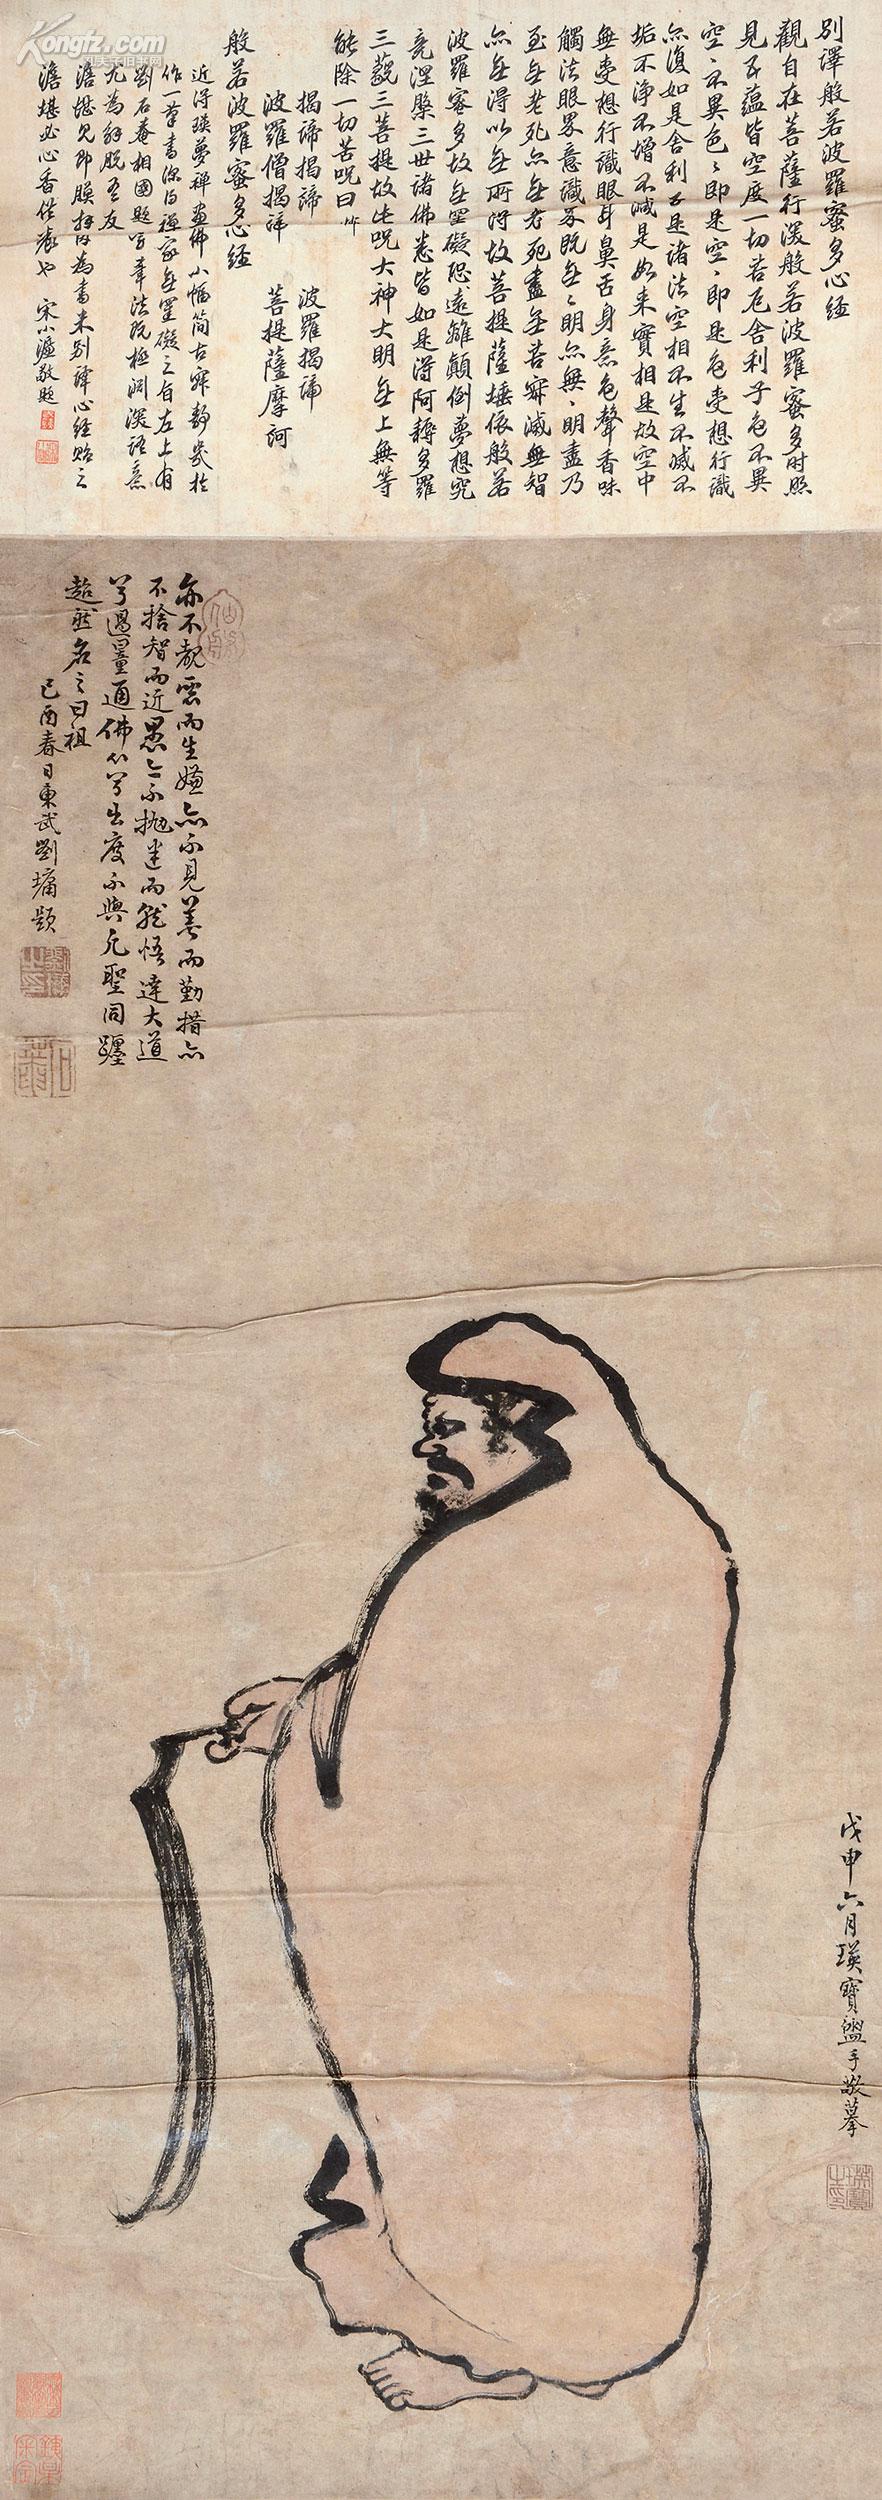 別譯般若波羅蜜多心經
觀自在菩薩行深般若波羅蜜多時照
見五蘊皆空度一切苦厄舍利子色不異
空空不異色色即是空空即是色受想行識
亦復如是舍利子是諸法空相不生不滅不
垢不淨不增不減是如來實相是故空中
無受想行識眼耳鼻舌身意色聲香味
觸法眼界意識界既無無明亦無無明盡乃
至無老死亦無老死盡無苦寂滅無智
亦無得以無所得故菩提薩埵依般若
波羅蜜多故無罣礙恐遠離顛倒夢想究
竟涅槃三世諸佛悉皆如是得阿耨多羅
三藐三菩提故此咒大神大明無上無等
能除一切苦咒曰
揭諦揭諦 波羅揭諦
波羅僧揭諦 菩提薩摩訶
般若波羅蜜多心經
近得瑛夢禪畫佛小幅簡古寂靜
作一筆書深得禪家無罣礙之旨左上有
劉石菴相國題字章法既極淵深語意
尤為解脫老友
澹堪見即膜拜因為書宋別譯心經貽之
澹堪必心香供養也 宋小濂敬題
亦不覩惡而生嫌亦不見善而勤措亦
不捨智而近愚亦不拋迷而就悟達大道
兮過量通佛心兮出度不與凡聖同躔
超然名之曰祖
己酉春日東武劉墉題
戊申六月瑛寶盥手敬摹
Kongfz.com